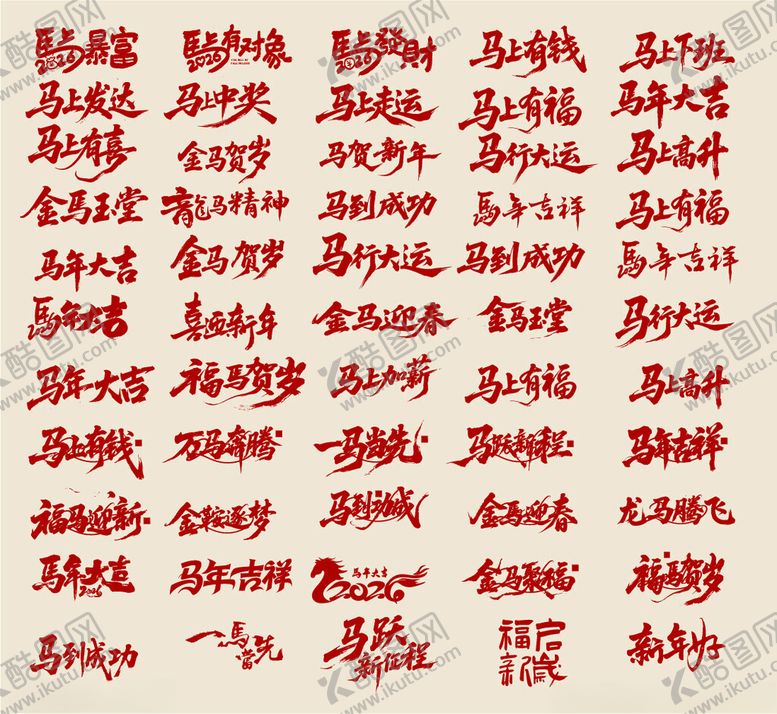 馬上暴富 2026
馬上有对象 2026
馬上發財 2026
马上有钱
马上下班
马上发达
马上中奖
马上走运
马上有福
马年大吉
马上有喜
金马贺岁
马贺新年
马行大运
马上高升
金馬玉堂
龍马精神
马到成功
馬年吉祥
马上有福
马年大吉
金马贺岁
马行大运
马到成功
馬年吉祥
馬年大吉
喜迎新年
金马迎春
金马玉堂
马行大运
马年大吉
福馬贺岁
马上加薪
马上有福
马上高升
马上有钱
万马奔腾
一马当先
马跃新程
马年吉祥
福马迎新
金鞍逐梦
马到功成
金馬迎春
龙马腾飞
馬年大吉 2026
马年吉祥
馬年大吉 2026
金马聚福
福馬贺岁
马到成功
一馬當先
马跃新征程
福启新歲
新年好
酷图网
www.ikutu.com